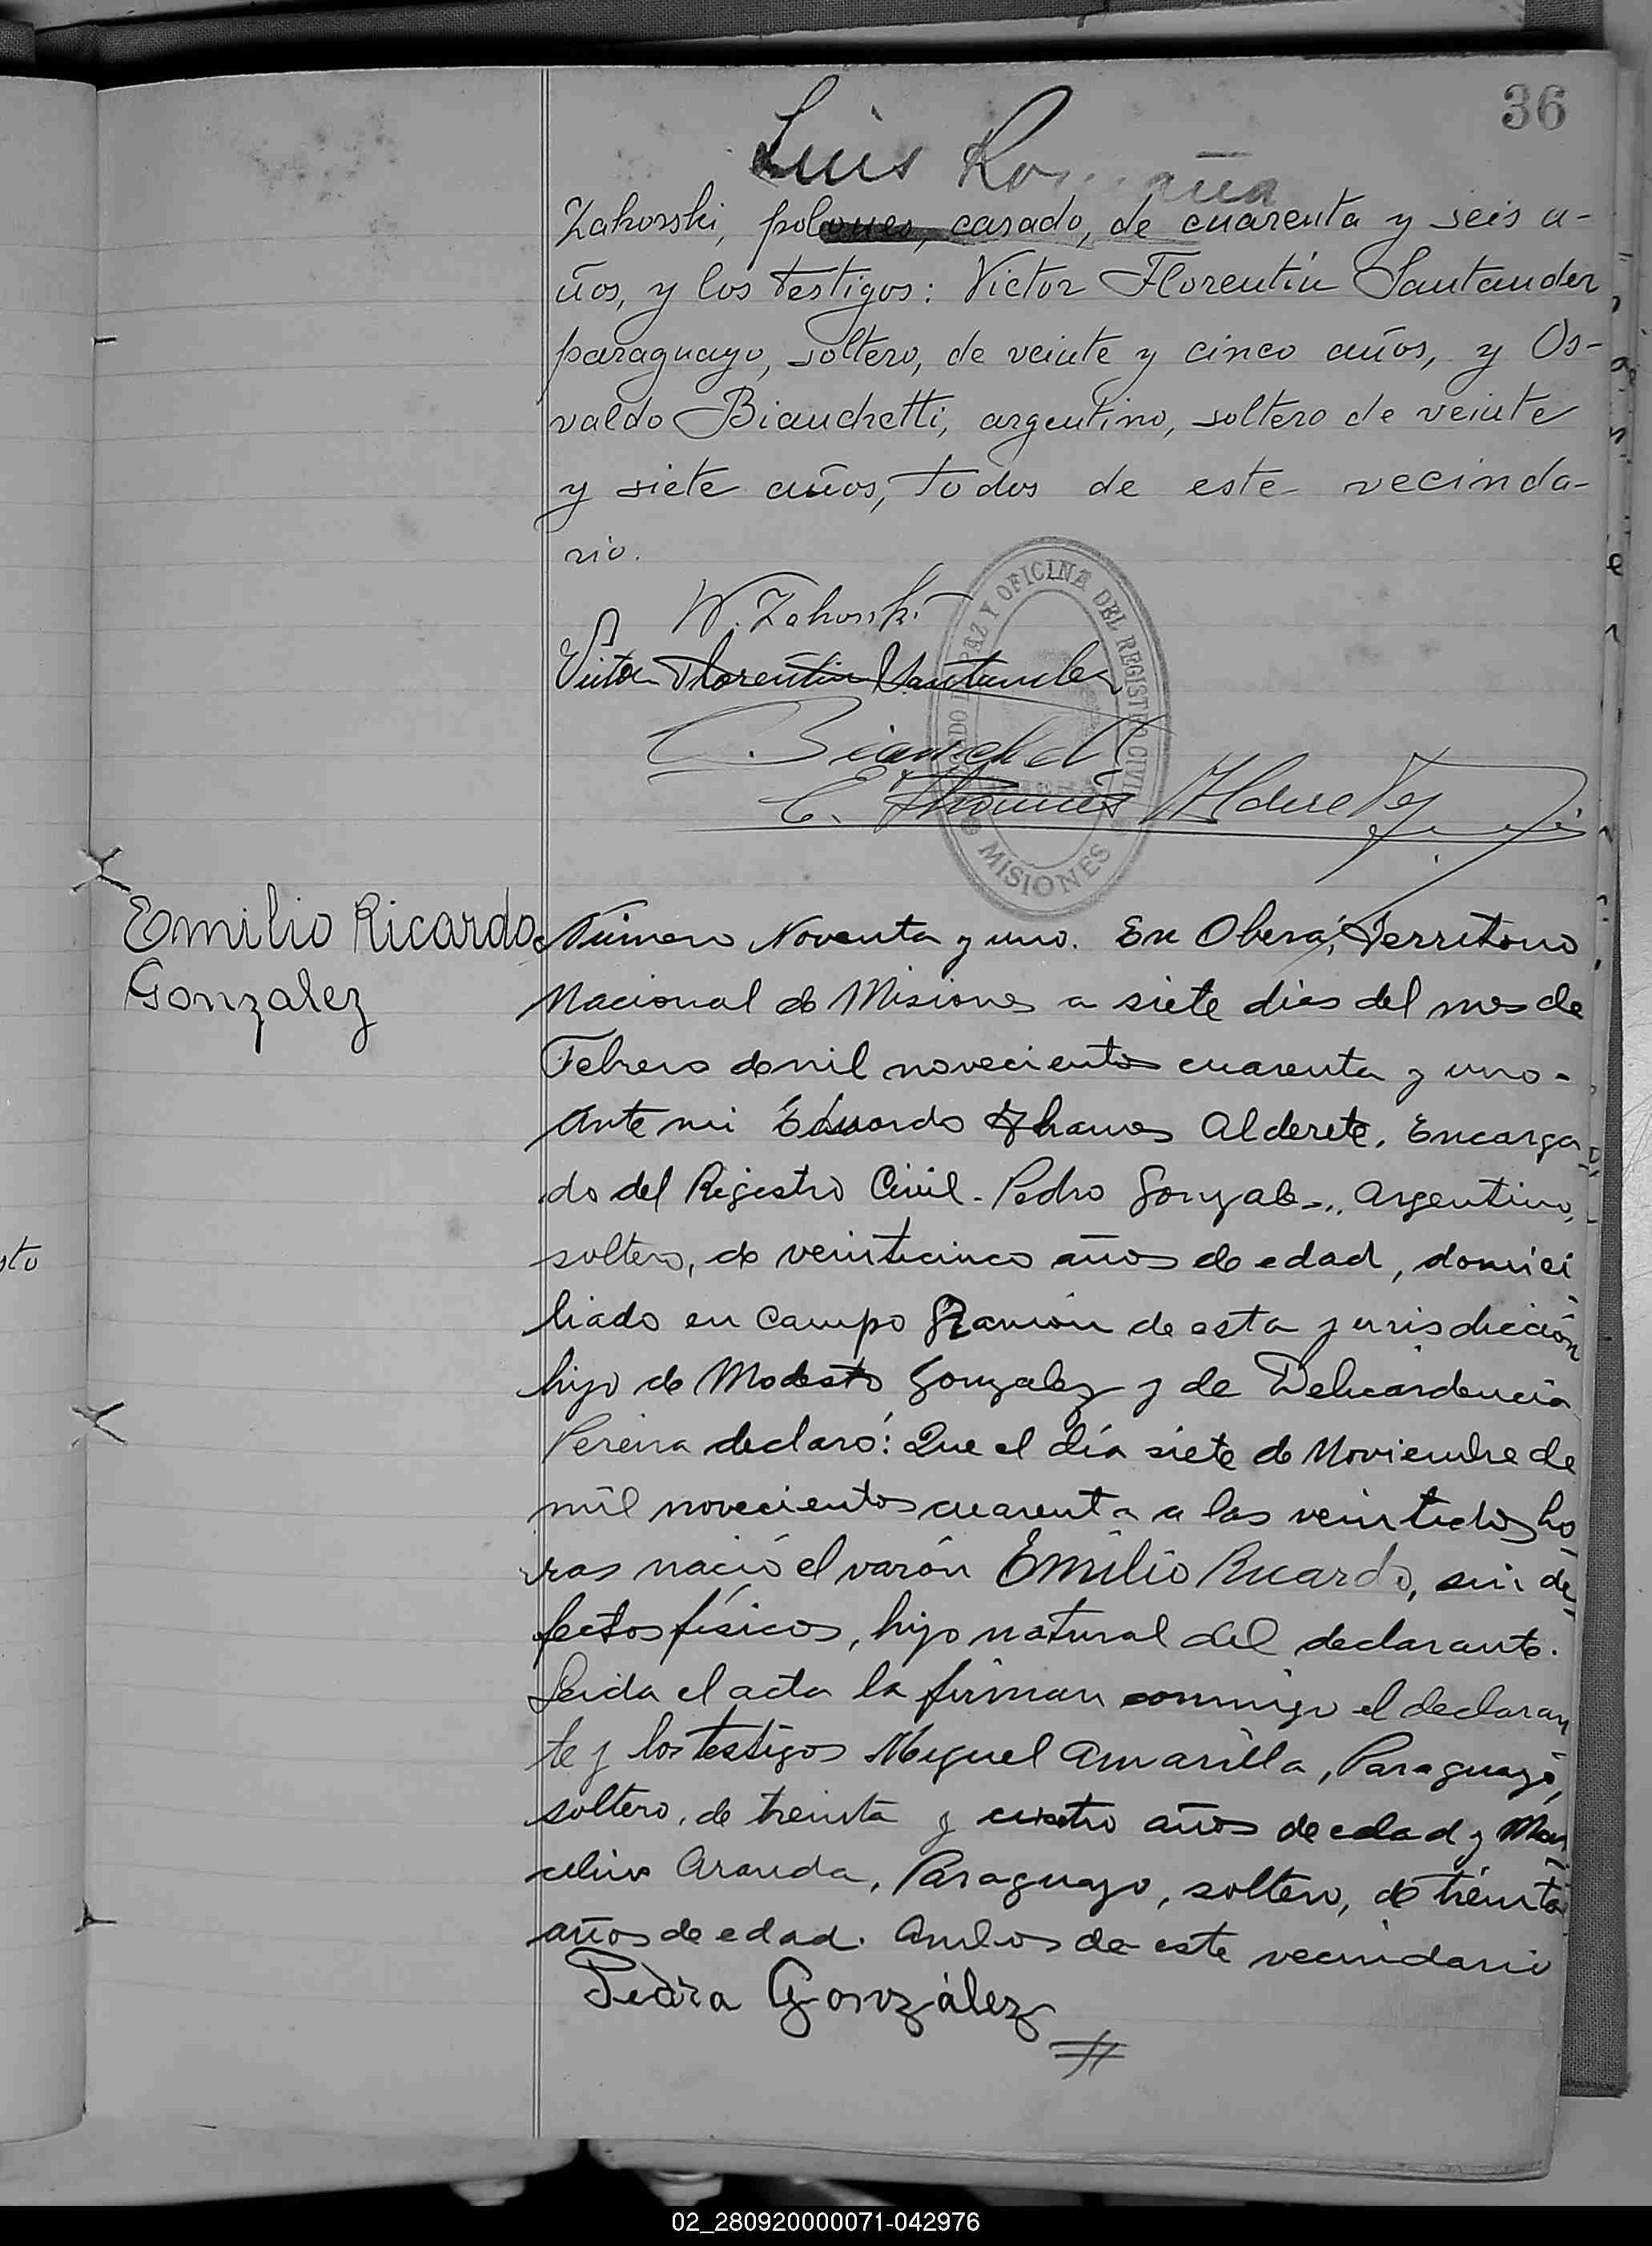 36
Luis Romaña
Zakorski, polones, casado, de cuarenta y seis a-
ños, y los testigos: Victor Florentín Santander
paraguayo, soltero, de veinte y cinco años, y Os-
valdo Bianchetti, argentino, soltero de veinte
y siete años, todos de este vecinda-
rio.
W. Zakorski
Victor Florentin Santander
PAZ Y OFICINA DEL REGISTRO CIVIL
MISIONES
Emilio Ricardo
Gonzalez
Número Noventa y uno. En Oberá, Territorio
Nacional de Misiones a siete dias del mes de
Febrero de mil novecientos cuarenta y uno -
Ante mi Eduardo Thames Alderete, Encarga
do del Registro Civil - Pedro Gonzalez, Argentino,
soltero, de veinticinco años de edad, domici
liado en Campo Ramón de esta jurisdicción
hijo de Modesto Gonzalez y de
Pereira declaró: Que el día siete de Noviembre de
mil novecientos cuarenta a las veintidos ho
ras nació el varón Emilio Ricardo, sin de
fectos físicos, hijo natural del declarante.
Leida el acta la firman conmigo el declaran
te y los testigos Miguel Amarilla, Paraguayo,
soltero, de treinta y cuatro años de edad y Mar
celino Aranda, Paraguayo, soltero, de treinta
años de edad. Ambos de este vecindario
Pedro González
sto
02_280920000071-042976